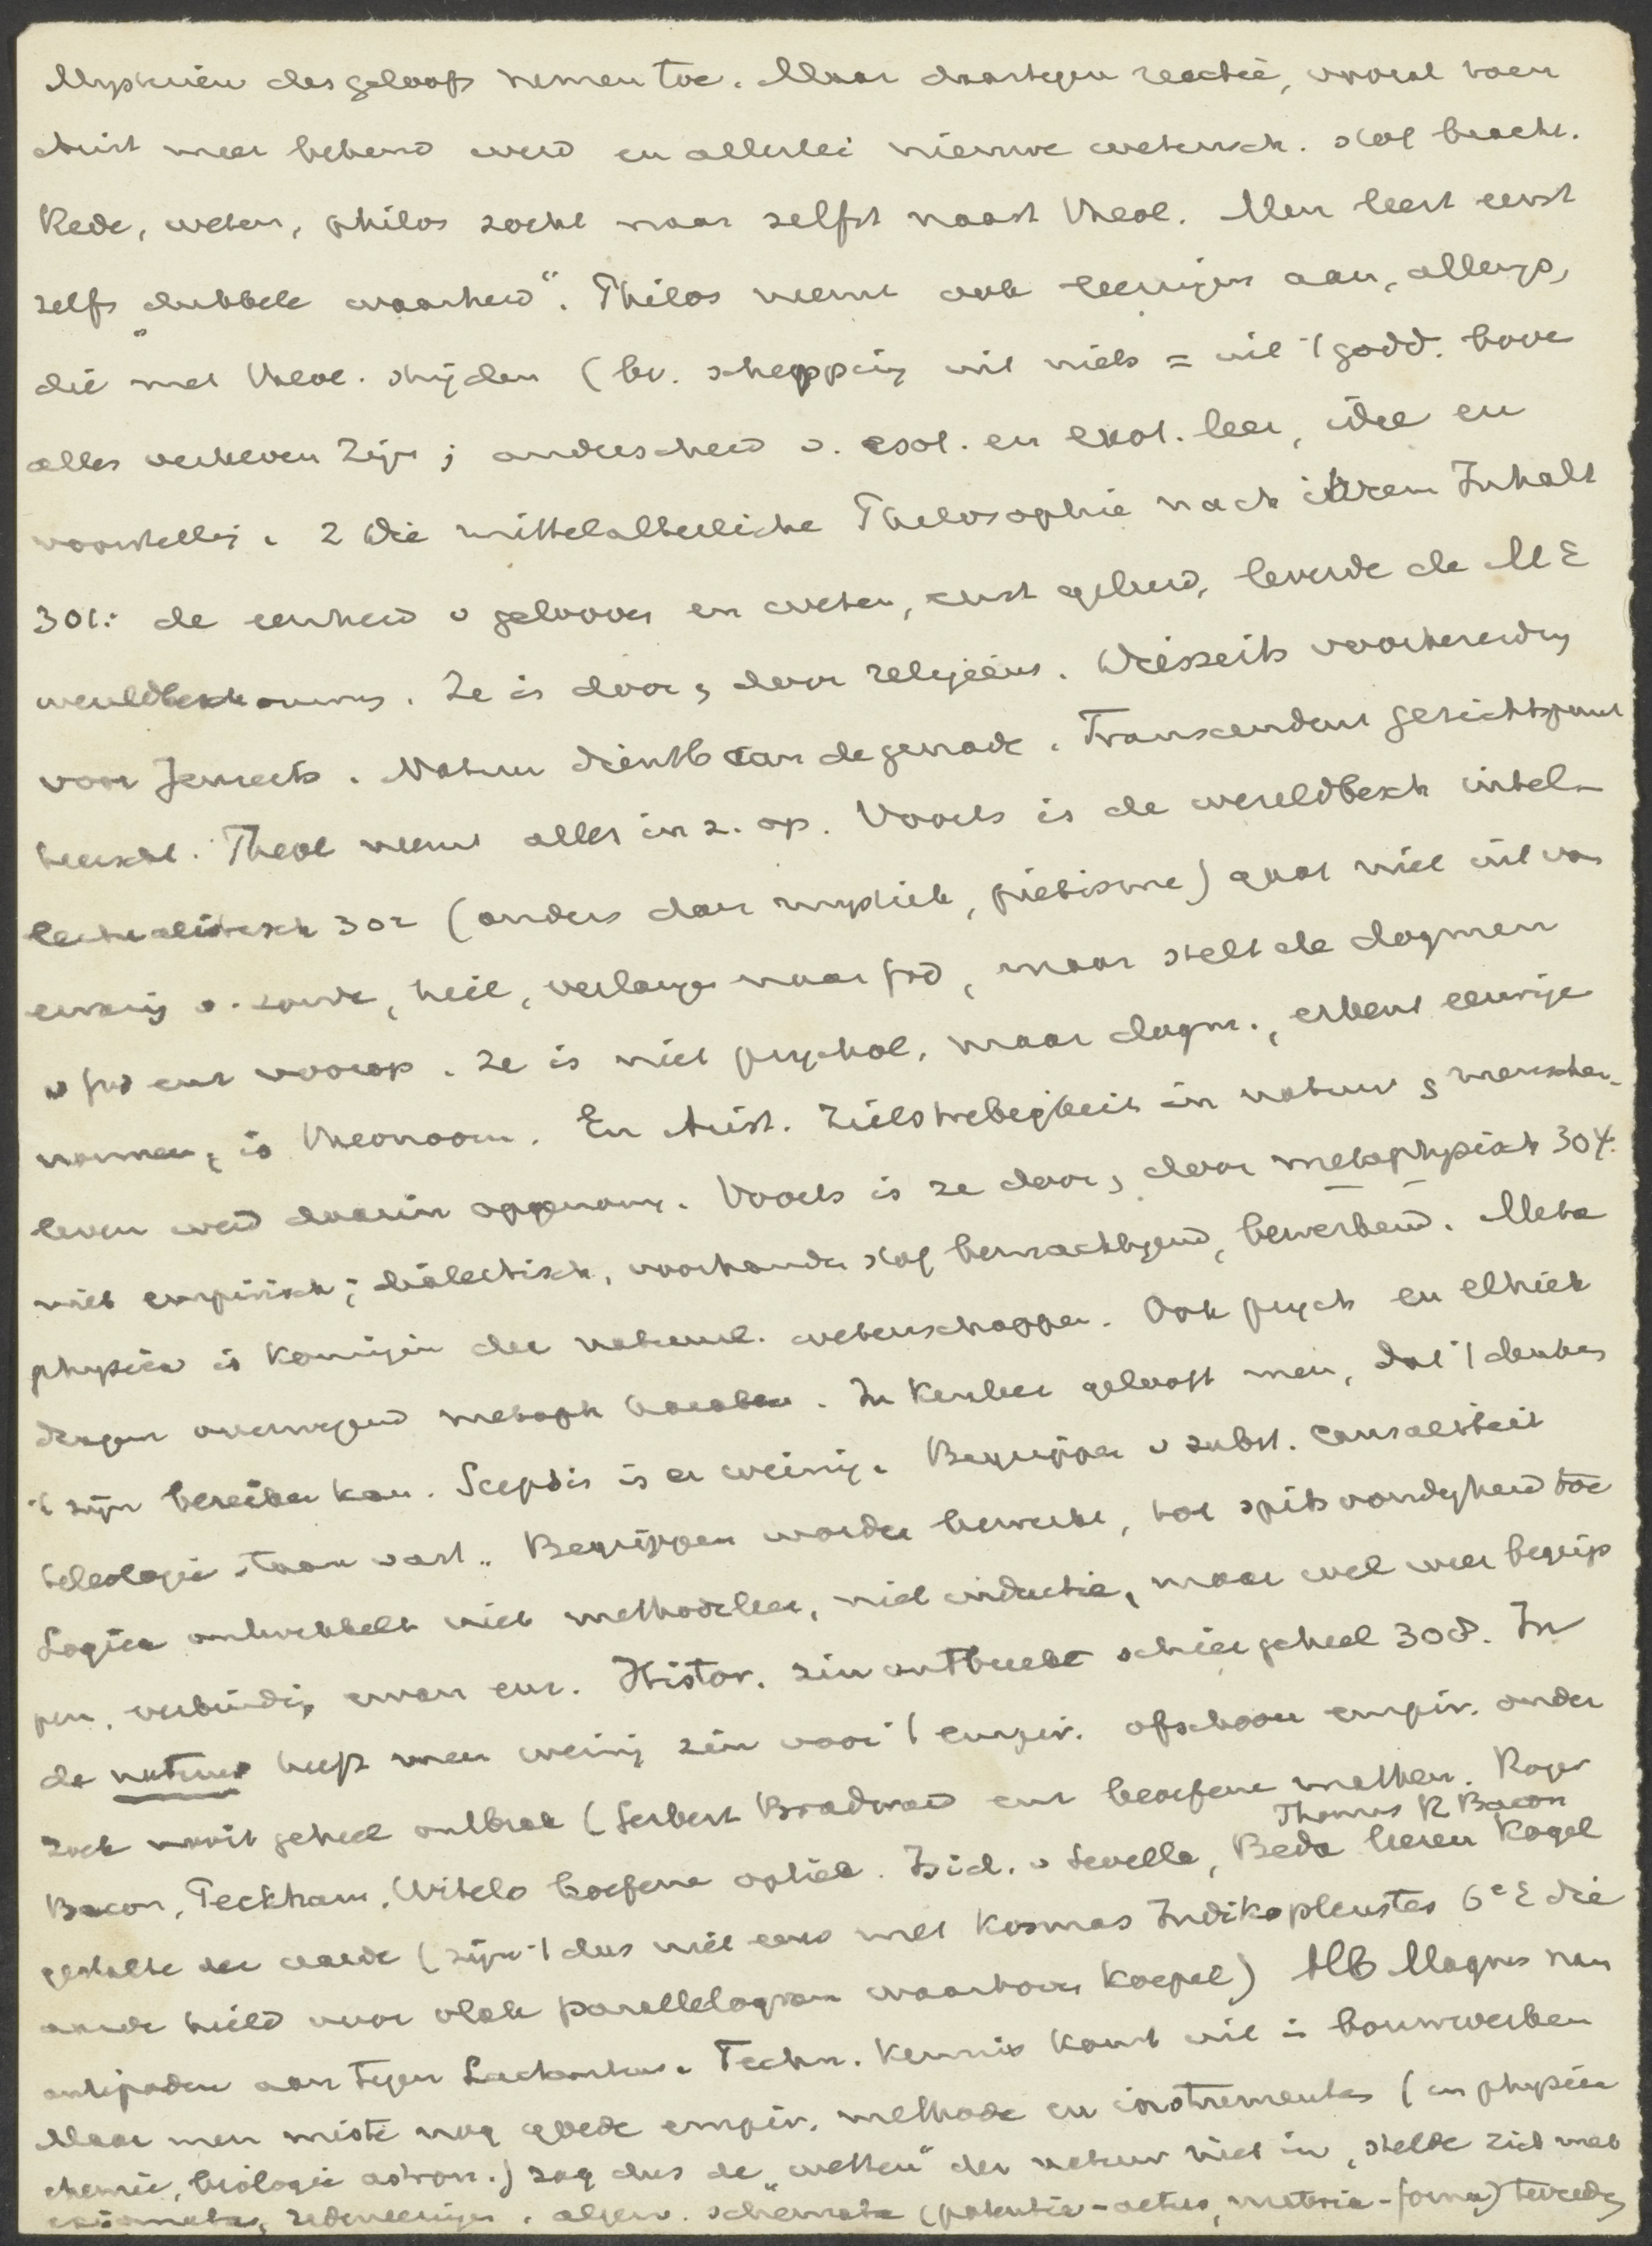 Mysteriën des geloofs nemen toe. Maar daartegen reactie, vooral toen
Arist meer bekend werd en allerlei nieuwe wetensch. stof bracht.
Rede, weten, philos zocht naar zelfst naast theol. Men leert eerst
zelfs „dubbele waarheid“. Philos neemt ook leeringen aan, allengs,
die met theol. strijden (bv. schepping uit niets = uit 't godd. boven
alles verheven zijn; onderscheid v. esot. en exot. leer, idee en
voorstelling. 2 Die mittelalterliche Philosophie nach ihrem Inhalt
301: de eenheid v gelooven en weten, eerst geleerd, leverde de ME
wereldbeschouwing. Ze is door, door religieus. Diesseits voorbereiding
voor Jenseits. Natuur dienstb aan de genade. Transcendent gezichtspunt
heerscht. Theol neemt alles in z. op. Voorts is de wereldbesch intel-
lectualistisch 302 (anders dan mystiek, piëtisme) gaat niet uit van
ervaring v. zonde, heil, verlangen naar god, maar stelt de dogmen
v god enz voorop. Ze is niet psychol, maar dogm., erkent eeuwige
normen, is theonoom. En Arist. Zielstrebigkeit in natuur, menschen-
leven werd daarin opgenomen. Voorts is ze door, door metaphysisch 304.
niet empirisch; dialectisch, voorhanden stof bemachtigend, bewerkend. Meta
physica is koningin der natuurl. wetenschappen. Ook psych en ethiek
dragen overwegend metaph karakter. In kenleer gelooft men, dat 't denken
't zijn bereiken kan. Scepsis is er weinig. Begrippen v subst. causaliteit
teleologie staan vast. Begrippen worden bewerkt, tot spitsvondigheid toe
Logica ontwikkelt niet methodeleer, niet inductie, maar wel weer begrip
pen, verbinding ervan enz. Histor. zin ontbreekt schier geheel 308. In
de natuur heeft men weinig zin voor 't empir. ofschoon empir. onder
zoek nooit geheel ontbrak (Gerbert Bradward enz beoefenen mathem. Roger
Bacon, Peckham, Witelo beoefenen optiek. Isid. v Sevilla, Beda Thomas R Bacon leeren Kogel
gestalte der aarde (zijn 't dus niet eens met Kosmas Indikopleustes 6e E die
aarde hield voor vlak parallelogram waarboven koepel) Alb Magnus nam
antipoden aan tegen Lactantius. Techn. kennis komt uit in bouwwerken
Maar men miste nog goede empir. methode en instrumenten (in physica
chemie, biologie astron.) zag dus de „wetten“ der natuur niet in, stelde zich met
redeneeringen, algem. schemata (potentia-actus, materia-forma) tevreden